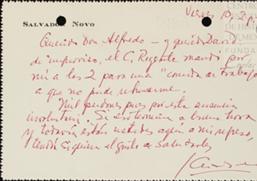 SALVADOR NOVO
Viernes
Querido Don Alfredo — y querido David
de improviso, el C. Regente mandó por
mí a los 2 para una "comida de trabajo"
a que no pude rehusarme.
Mil perdones pues por esta ausencia
involuntaria. Si se termina a buena hora
y todavía están ustedes aquí a mi regreso,
tendré siquiera el gusto de saludarlos